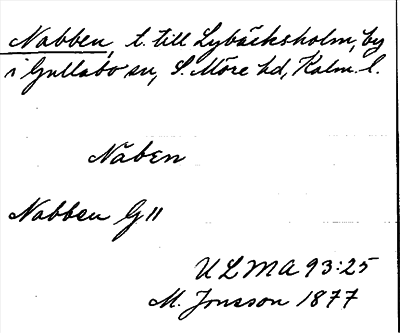 Nabben, t. till Lybäcksholm, by
i Gullabo sn, S. Möre hd, Kalm. l.
Nabben G 11
ULMA 93:25
M. Jonsson 1877